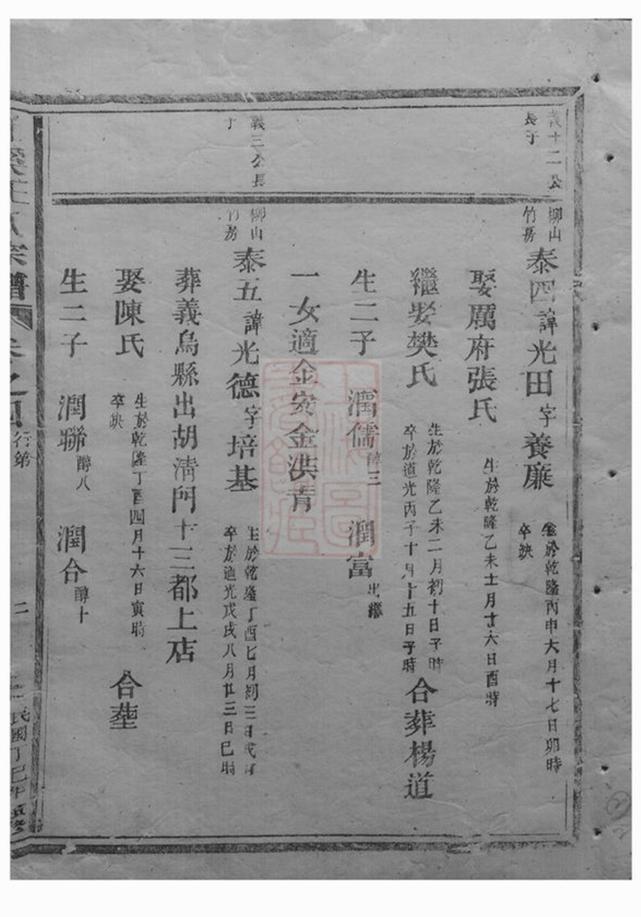 義十二公
長子
柳山
竹房
泰四諱光田字養廉
生於乾隆丙申六月十七日卯時
卒缺
娶厲府張氏
生於乾隆乙未十月十六日酉時
繼娶樊氏
生於乾隆乙未二月初十日子時
卒於道光丙子十月十五日子時
合葬楊道
生二子
潤儒 醇三
潤富 出繼
一女適金安金洪青
義三公長
子
柳山
竹房
泰五諱光德字培基
生於乾隆丁酉七月初三日戌時
卒於道光戊戌八月廿三日巳時
葬義烏縣出胡清門十三都上店
娶陳氏
生於乾隆丁酉四月十六日寅時
卒缺
合塟
生二子
潤聯 醇八
潤合 醇十
宗譜
卷之四
行第
二
民國丁巳年重修